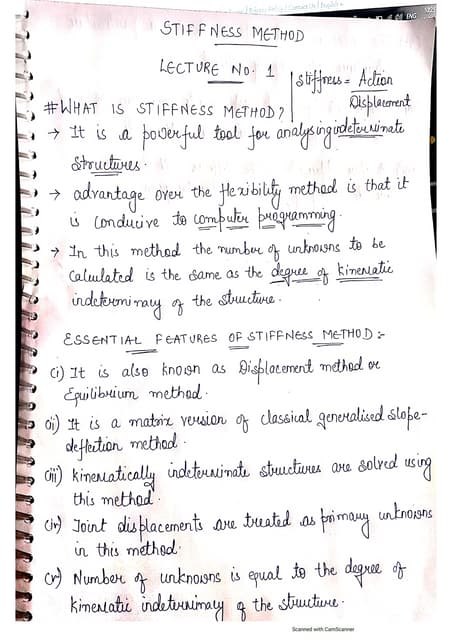 STIFFNESS METHOD
LECTURE NO. 1
Stiffness = Action
Displacement
#WHAT IS STIFFNESS METHOD?
→ It is a powerful tool for analysing indeterminate
structures.
→ advantage over the flexibility method is that it
is conducive to computer programming.
→ In this method the number of unknowns to be
calculated is the same as the degree of kinematic
indeterminacy of the structure.
ESSENTIAL FEATURES OF STIFFNESS METHOD:-
(i) It is also known as Displacement method or
Equilibrium method.
(ii) It is a matrix version of classical generalised slope-
deflection method.
(iii) kinematically indeterminate structures are solved using
this method.
(iv) Joint displacements are treated as primary unknowns
in this method.
(v) Number of unknowns is equal to the degree of
kinematic indeterminacy of the structure.
Scanned with CamScanner